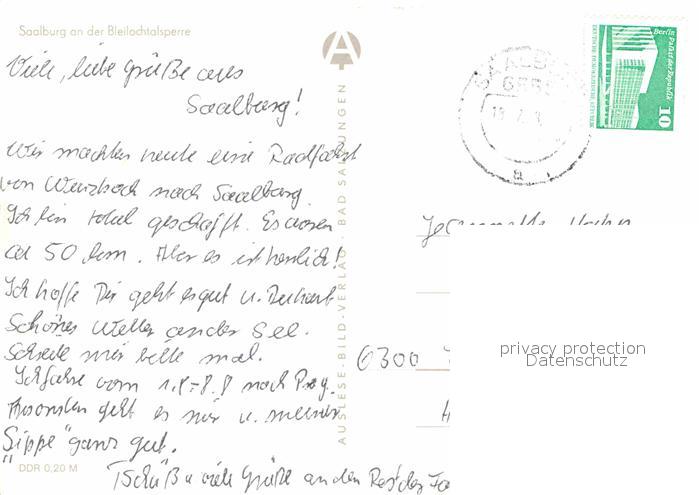 Saalburg an der Bleilochtalsperre
Viele, liebe Grüße aus
Saalburg!
Wir machten heute eine Radfahrt
von Wurzbach nach Saalburg.
Ich bin total geschafft. Es waren
ca 50 km. Aber es ist herrlich!
Ich hoffe Dir geht es gut u. Du hast
Schönes Wetter an der See.
Schreibe mir bitte mal.
Ich fahre vom 1.8-8.8 nach Prag.
Ansonsten geht es mir u. meiner
"Sippe" ganz gut.
Tschüß u viele Grüße an den Rest der Fa
DDR 0,20 M
AUSLESE-BILD-VERLAG BAD SALZUNGEN
Berlin Palast der Republik
DEUTSCHE DEMOKRATISCHE REPUBLIK
10
6300
privacy protection
Datenschutz